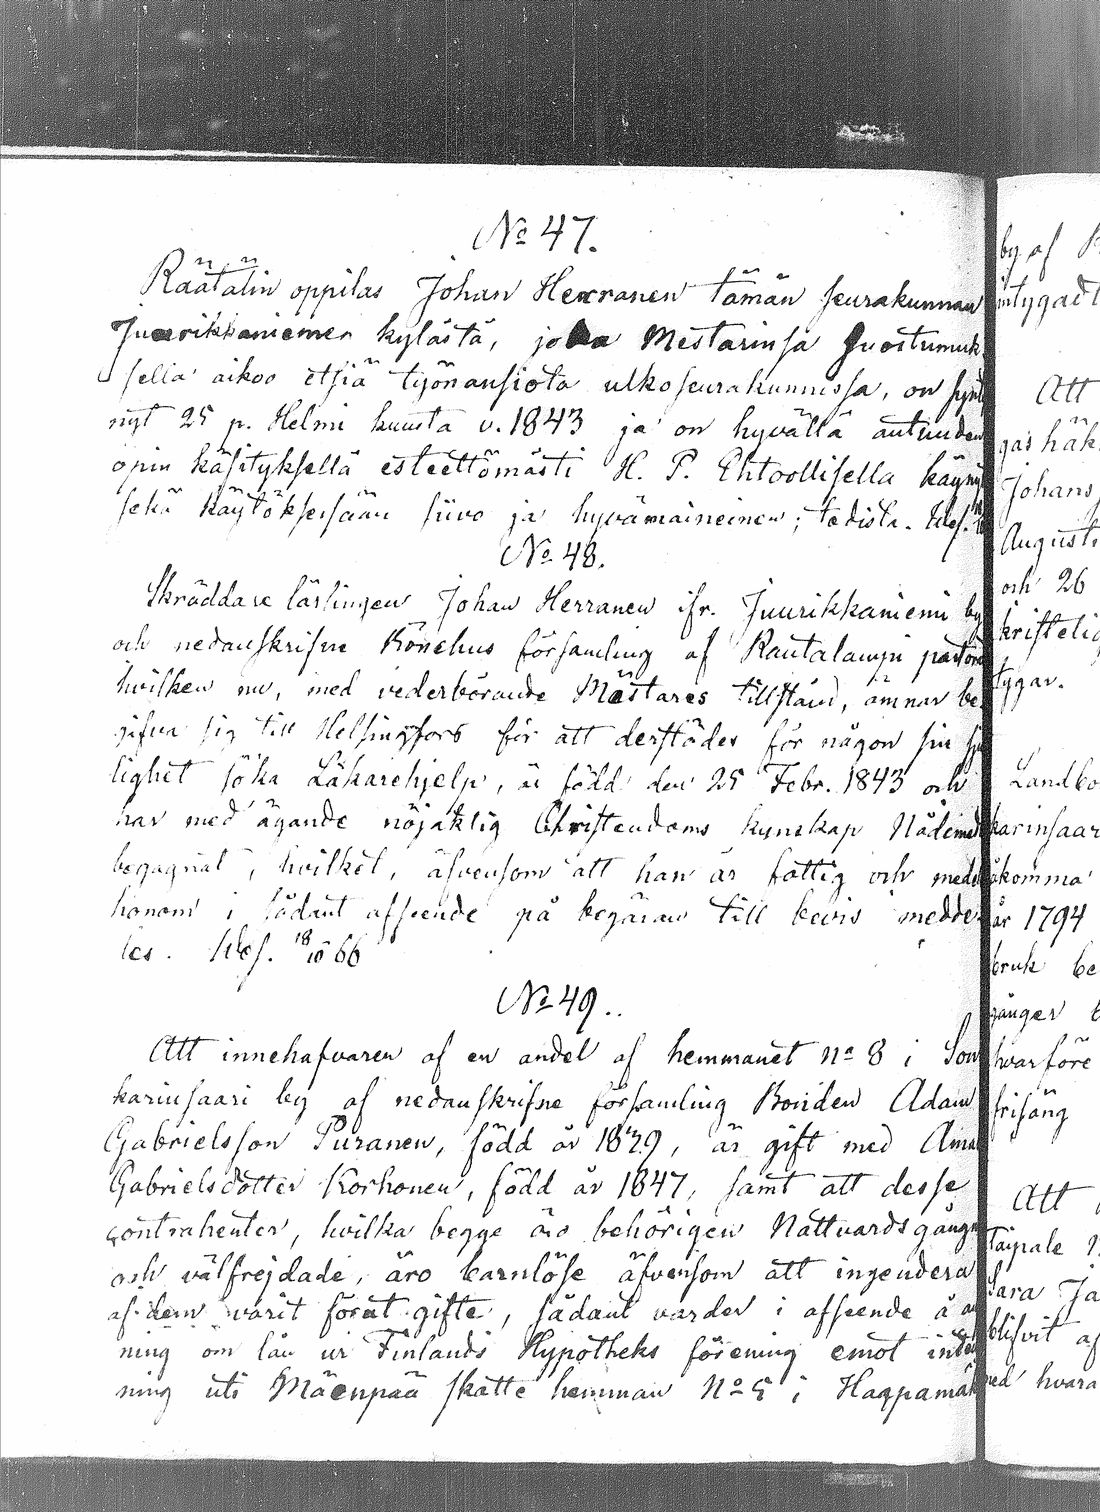 No 47.
Räätälin oppilas Johan Herranen tämän seurakunnan
Juurikkaniemen kylästä, joka Mestarinsa Suostumuk-
sella aikoo etsiä työnansiota ulkoseurakunnissa, on synt
nyt 25 p. Helmi kuusta v. 1843 ja on hyvällä autuuden
opin käsityksellä esteettömästi H. P. Ehtoollisella käyny
sekä käytöksessään siivo ja hyvämaineinen; todista. Wes.
No 48.
Skräddare lärlingen Johan Herranen ifr. Juurikkaniemi by
och nedanskrifne Könchus församling af Rautalampi pastora
hvilken nu, med vederbörande Mästares tillstånd, ämnar be-
gifva sig till Helsingfors för att derstädes för någon sin sju
lighet söka Läkarehjelp, är född den 25 Febr. 1843 och
har med ägande nöjaktig Christendoms kunskap Nådemed
begagnat, hvilket, äfvensom att han är fattig och medel
honom i sådant afseende på begäran till bevis medde-
les. Wes. 18/10 66
No 49..
Att innehafvaren af en andel af hemmanet No 8 i Son
karinsaari by af nedanskrifne församling Bonden Adam
Gabrielsson Puranen, född år 1829, är gift med Anna
Gabrielsdotter Korhonen, född år 1847, samt att desse
contrahenter, hvilka begge äro behörigen Nattvardsgångne
och välfrejdade, äro barnlöse äfvensom att ingendera
af dem varit förut gifte, sådant varder i afseende å an
ning om lån ur Finlands Hypotheks förening emot inteck
ning uti Mäenpää skatte hemman No 5 i Haapamäk
by af
intygadt
Att
gas häk
Johans
August
och 26
kristelig
tygar.
Landbo
karinsaar
åkomma
år 1794
bruk be
gånger
hvarföre
frisäng
Att
Taipale
Sara Ja
blifvit af
med hvara